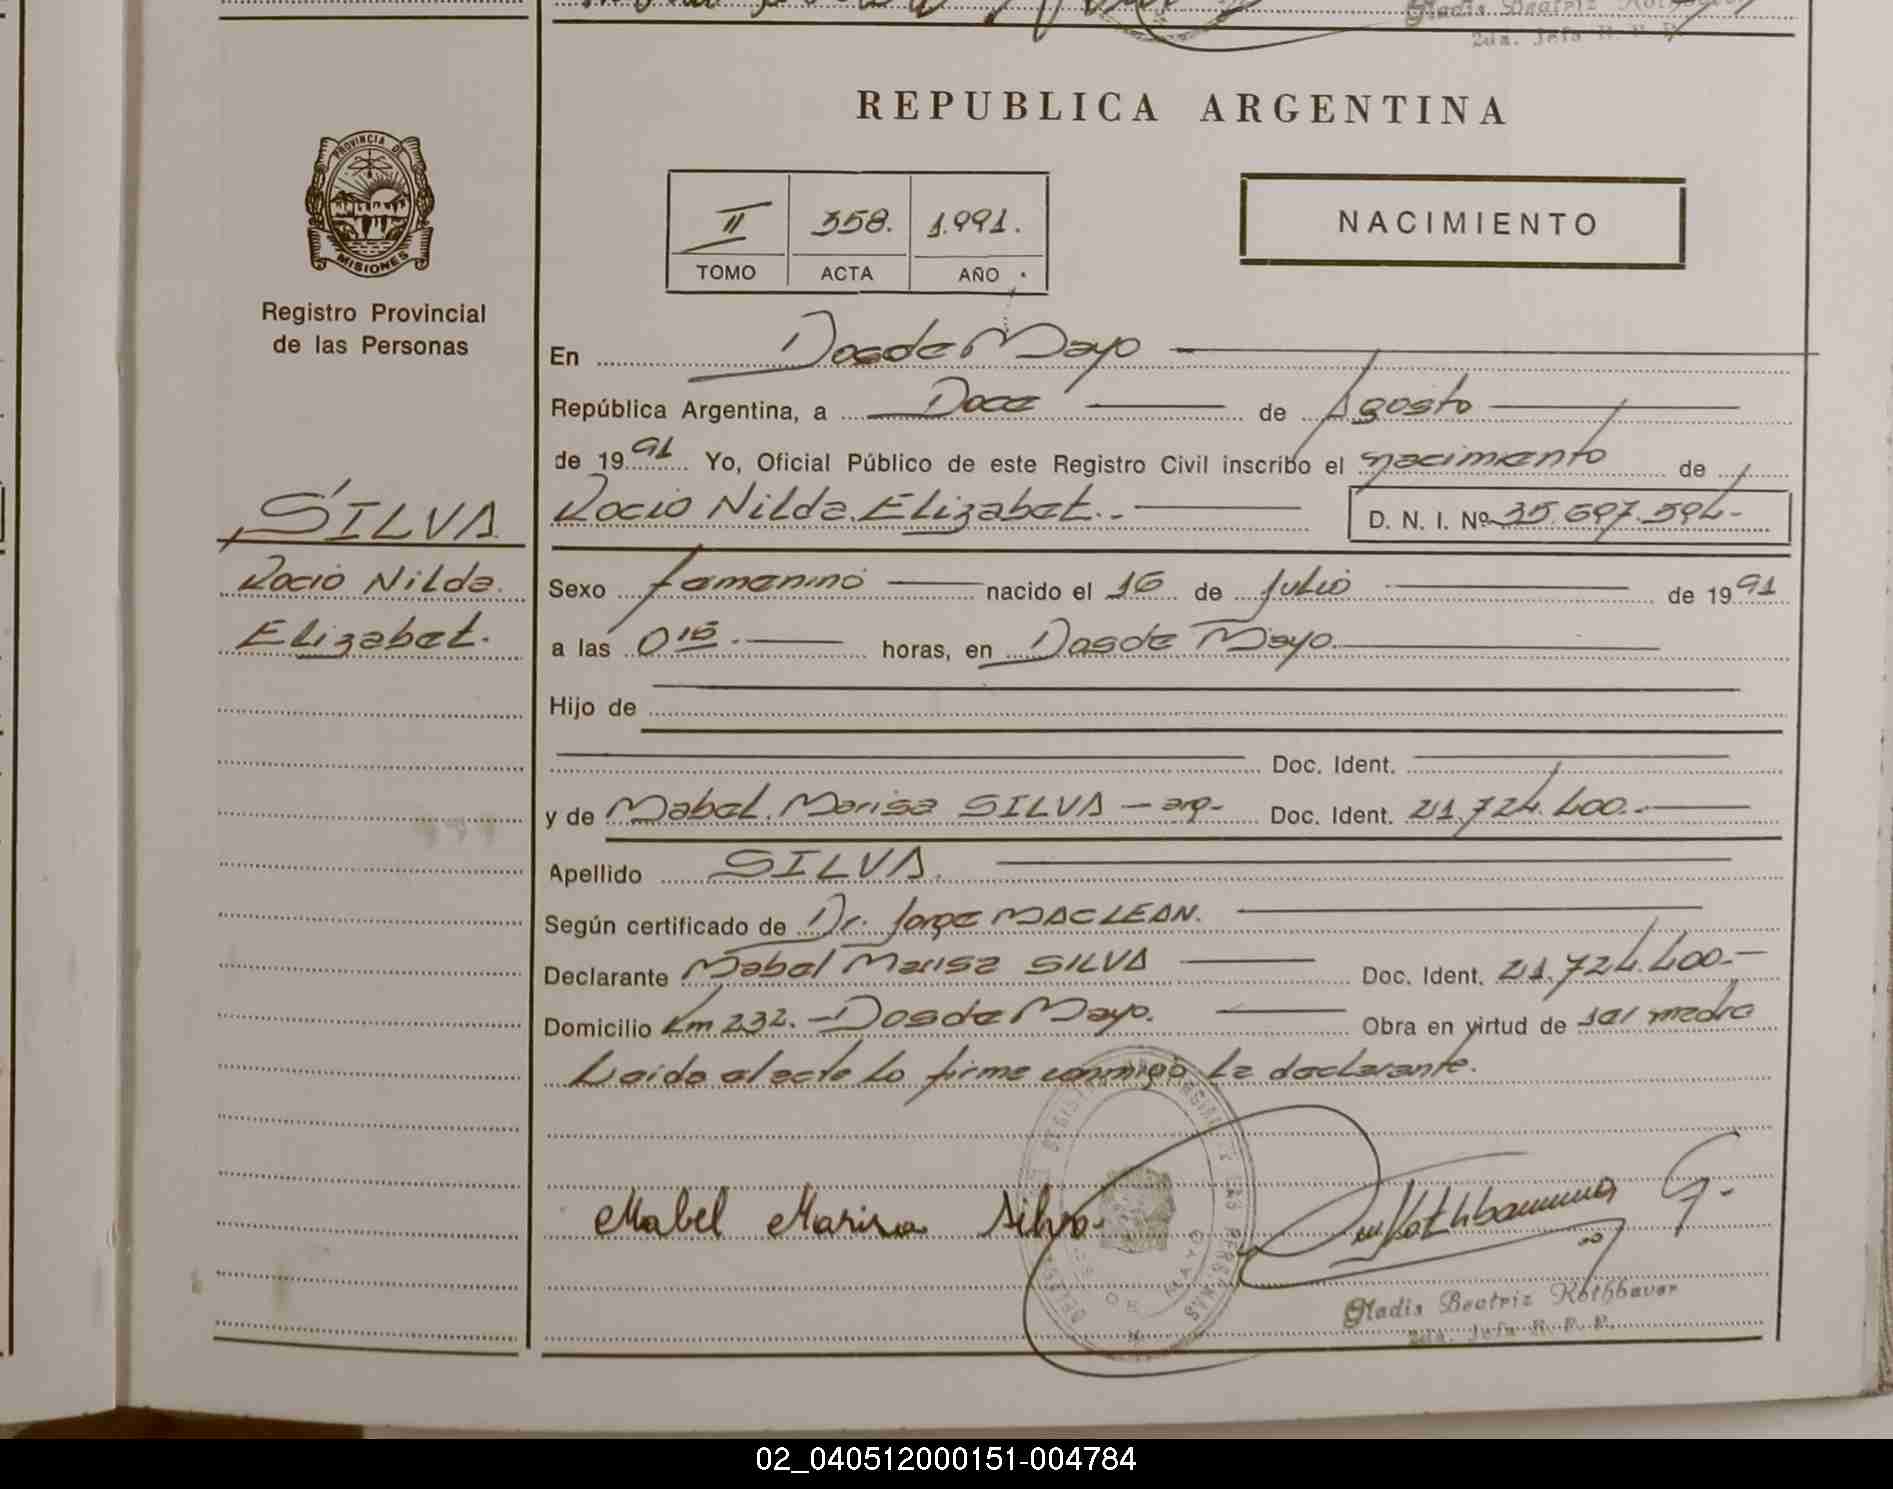 Gladis Beatriz
2da. Jefa R. P. P.
REPUBLICA ARGENTINA
PROVINCIA DE
MISIONES
Registro Provincial
de las Personas
II 358. 1.991.
TOMO ACTA AÑO
NACIMIENTO
En Dos de Mayo
República Argentina, a Doce de Agosto
de 1991 Yo, Oficial Público de este Registro Civil inscribo el nacimiento de
SILVA
Rocio Nilda Elizabet.
Rocio Nilda. Elizabet.- D. N. I. Nº 35.697.594-
Sexo femenino nacido el 16 de Julio de 1991
a las 0 15. horas, en Dos de Mayo.
Hijo de
Doc. Ident.
y de Mabel. Marisa SILVA - arg- Doc. Ident. 21.724.400.-
Apellido SILVA.
Según certificado de Dr. Jorge MACLEAN.
Declarante Mabel Marisa SILVA Doc. Ident. 21.724.400.-
Domicilio Km 232. - Dos de Mayo. Obra en virtud de ser madre
Leida el acta lo firma conmigo la declarante.
Mabel Marisa Silva.
Gladis Beatriz Rothbauer
2da. Jefa R. P. P.
02_040512000151-004784